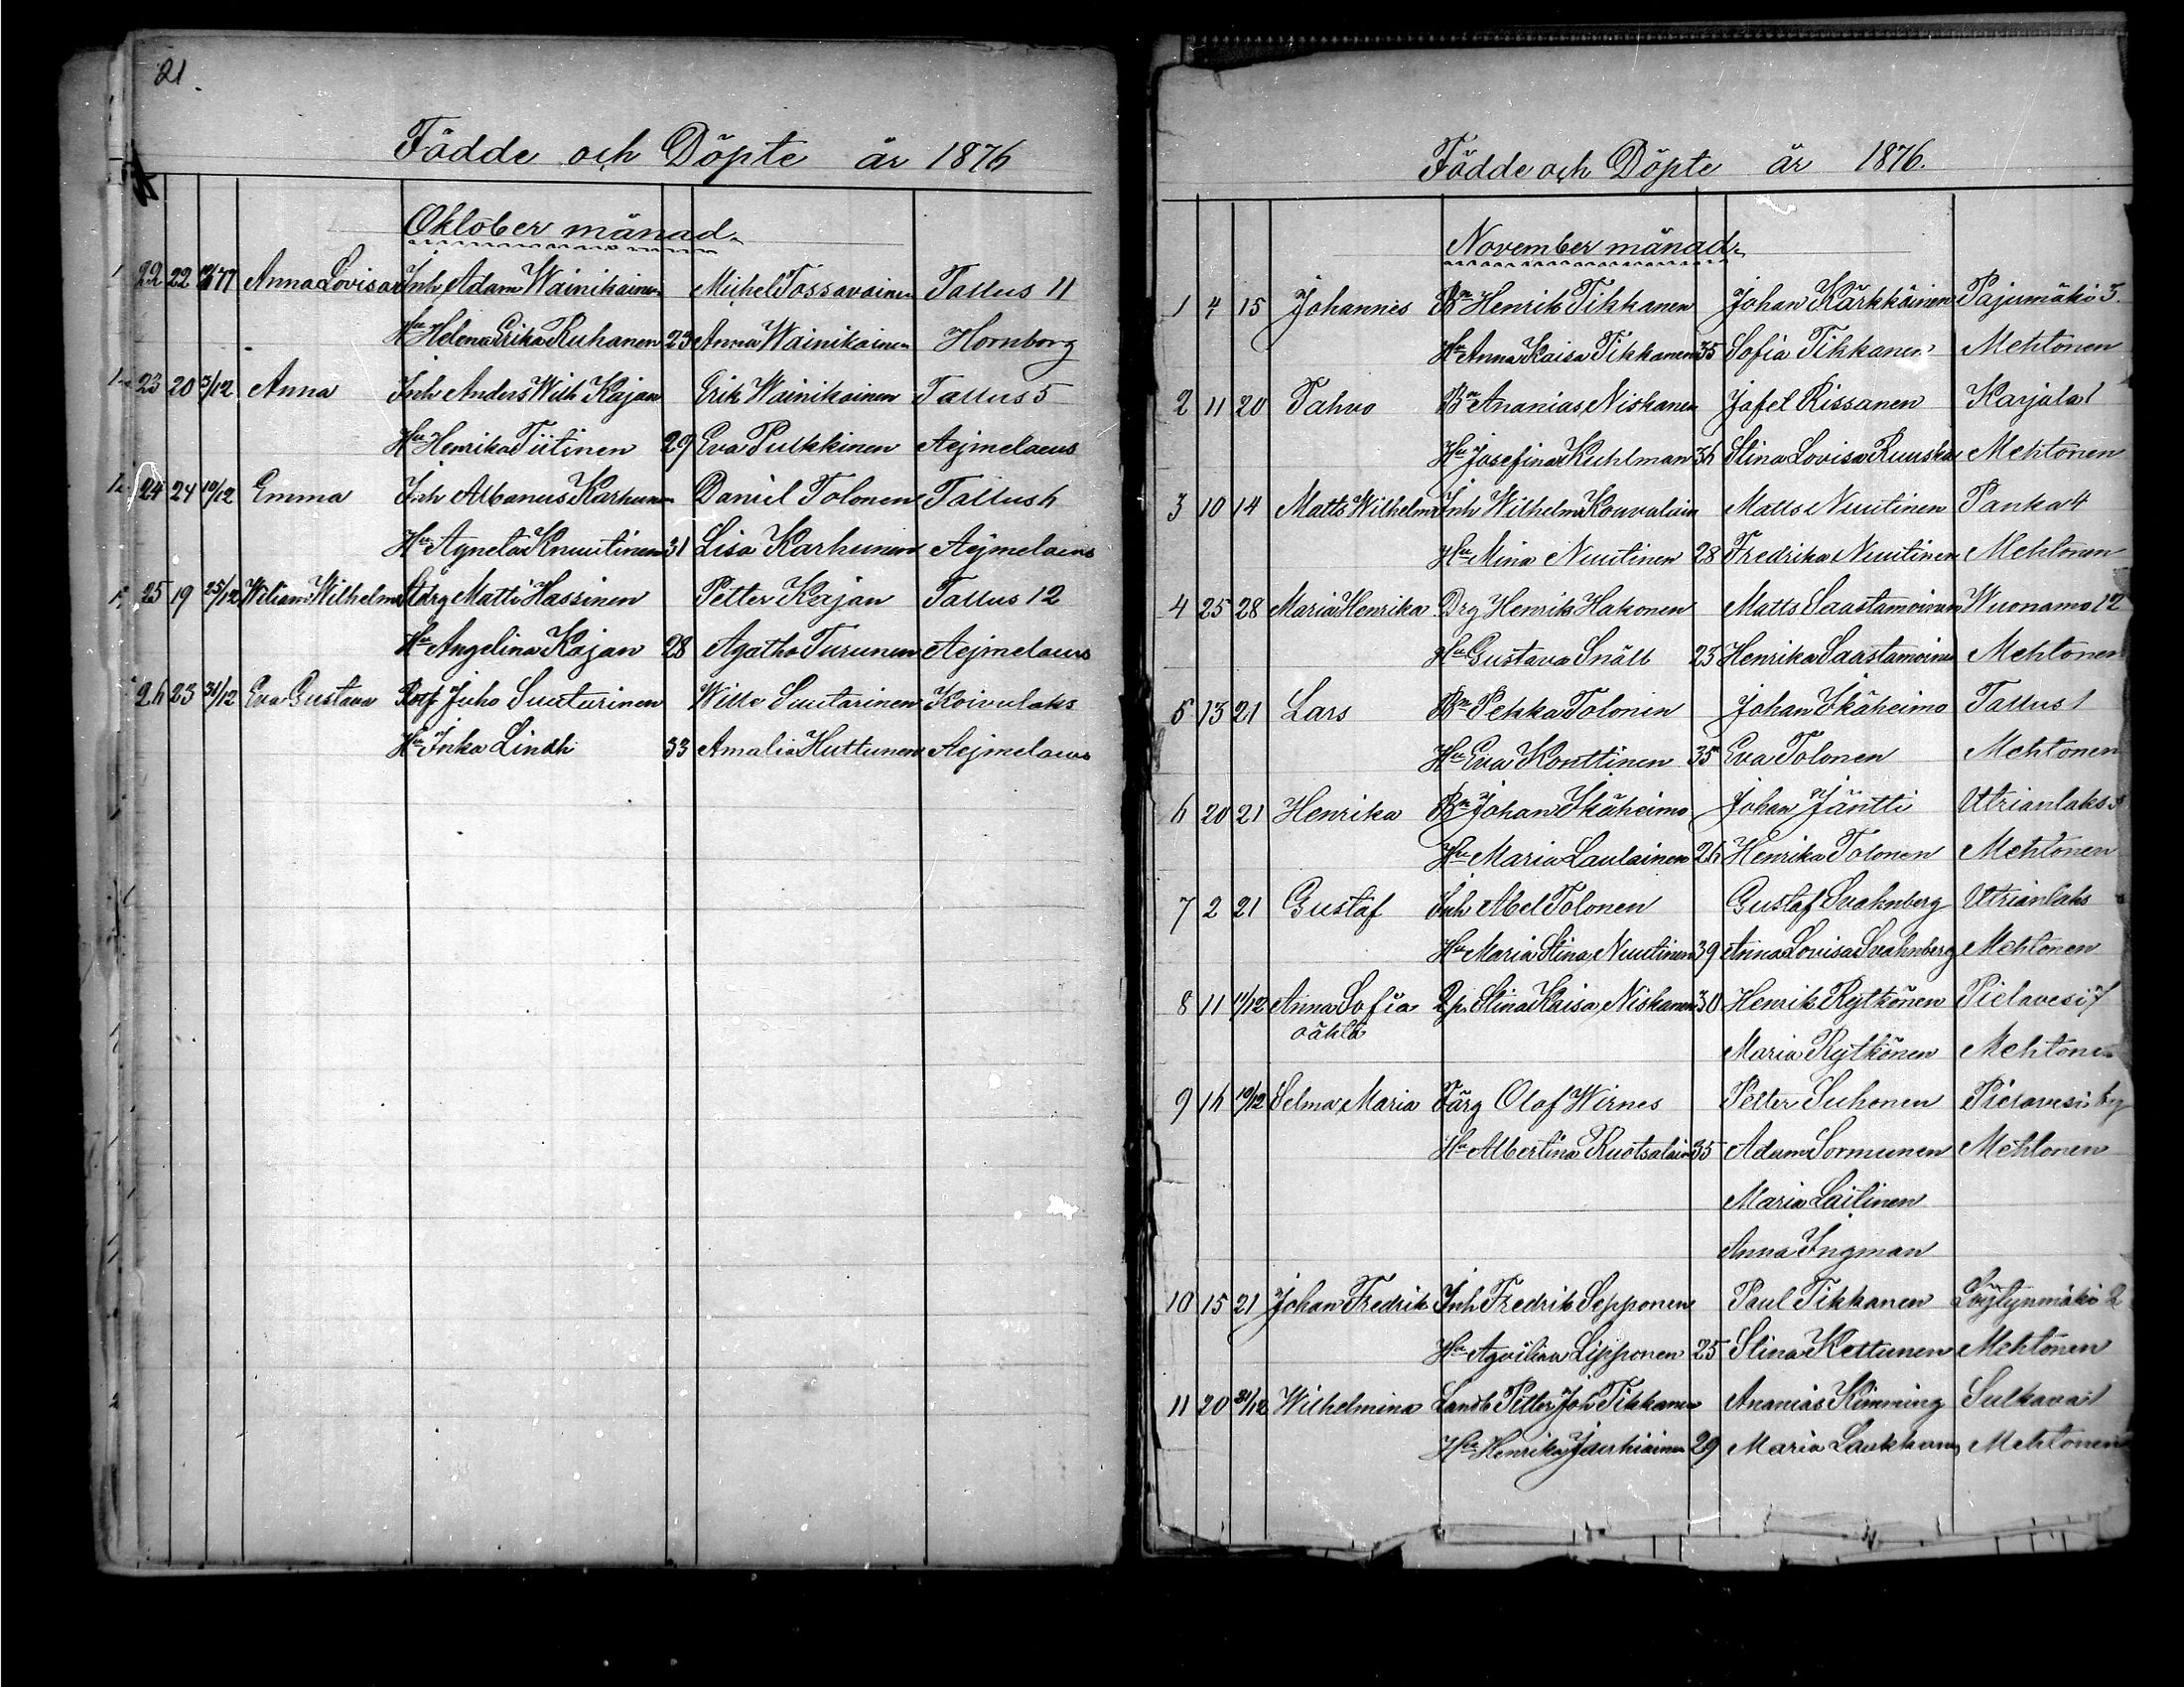 21.
Födde och Döpte år 1876
Oktober månad.
22 22 Anna Lovisa Inh Adam Wainikainen Michel Tossavainen Tallus 11
Hu Helena Erika Ruhanen 23 Anna Wainikainen Hornborg
23 20 3/12 Anna Inh Anders Wilh Kajan Erik Wainikainen Tallus 5
Hu Henrika Tiitinen 29 Eva Pulkkinen Aejmelaeus
24 24 10/12 Emma Inh Albanus Karhunen Daniel Tolonen Tallus 6
Hu Agneta Knuutinen 31 Lisa Karhunen Aejmelaeus
25 19 25/12 Wiliam Wilhelm Matti Hassinen Petter Kajan Tallus 12
Hu Angelina Kajan 28 Agatha Turunen Aejmelaeus
26 23 31/12 Eva Gustava Juho Suutarinen Wille Suutarinen Koivulaks
Hu Inka Lindh 33 Amalia Huttunen Aejmelaeus
Födde och Döpte år 1876.
November månad.
1 4 15 Johannes Bn Henrik Tikkanen Johan Kärkkäinen Pajumäki 3.
Hu Anna Kaisa Tikkanen 35 Sofia Tikkanen Mehtonen
2 11 20 Tahvo Bn Ananias Niskanen Jafet Rissanen Karjala 1
Hu Josefina Kuhlman 36 Stina Lovisa Ruuska Mehtonen
3 10 14 Matts Wilhelm Inh Wilhelm Kouvalain Matts Nuutinen Panka 4
Hu Mina Nuutinen 28 Fredrika Nuutinen Mehtonen
4 25 28 Maria Henrika Drg Henrik Hakonen Matts Saastamoinen Wuonamo 12
Hu Gustava Snäll 23 Henrika Saastamoinen Mehtonen
5 13 21 Lars Bn Pekka Tolonen Johan Ikäheimo Tallus 1
Hu Eva Konttinen 35 Eva Tolonen Mehtonen
6 20 21 Henrika Bn Johan Ikäheimo Johan Jäntti Utrianlaks 5
Hu Maria Laulainen 26 Henrika Tolonen Mehtonen
7 2 21 Gustaf Inh Abel Tolonen Gustaf Svahnberg Utrianlaks
Hu Maria Stina Nuutinen 39 Anna Lovisa Svahnberg Mehtonen
8 11 11/12 Anna Sofia Pp. Stina Kaisa Niskanen 30 Henrik Rytkönen Pielavesi 7
oäkta
Maria Rytkönen Mehtonen
9 16 10/12 Selma Maria Färg Olof Wirnes Petter Suhonen Pielavesi by
Hu Albertina Ruotsalain 35 Adam Sormunen Mehtonen
Maria Lailinen
Anna Ingman
10 15 21 Johan Fredrik Inh Fredrik Sepponen Paul Tikkanen Löytynmäki 2
Hu Agvilina Lipponen 25 Stina Kettunen Mehtonen
11 20 31/12 Wilhelmina Landb Petter Joh Tikkanen Ananias Kimming Sulkava 1
Hu Henrika Jauhiainen 29 Maria Laukkanen Mehtonen